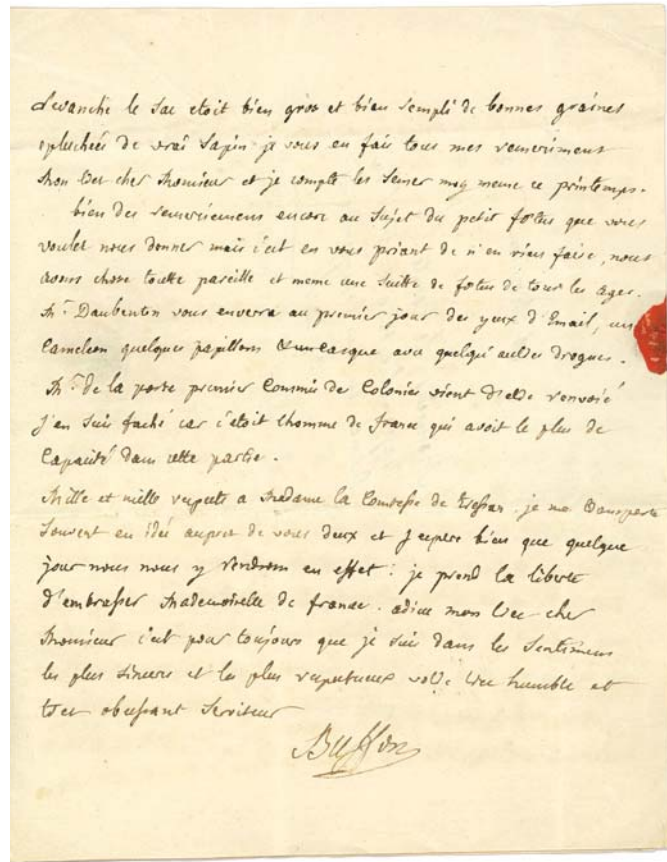 revanche le sac etoit bien gros et bien rempli de bonnes graines
epluchées de vrai sapin je vous en fais tous mes remerciment
mon tres cher monsieur et je compte les semer moy meme ce printemps.
bien des remerciemens encore au sujet du petit fœtus que vous
voulez nous donner mais c'est en vous priant de n'en rien faire, nous
avons chose toutte pareille et meme une suitte de fœtus de tous les ages.
Mr. Daubenton vous enverra au premier jour des yeux d'Email, un
Cameleon quelques papillons & un casque avec quelques autres drogues.
Mr. de la porte premier Commis des Colonies vient d'etre renvoié
j'en suis faché car c'étoit l'homme de france qui avoit le plus de
Capacité dans cette partie.
Mille et mille respects a Madame la Comtesse de Tressan. je me transporte
souvent en idée aupres de vous deux et j'espere bien que quelque
jour nous nous y rendrons en effet : je prend la liberté
d'embrasser Mademoiselle de france. adieu mon tres cher
Monsieur c'est pour toujours que je suis dans les sentimens
les plus sinceres et les plus respectueux votre tres humble et
tres obeissant serviteur
Buffon